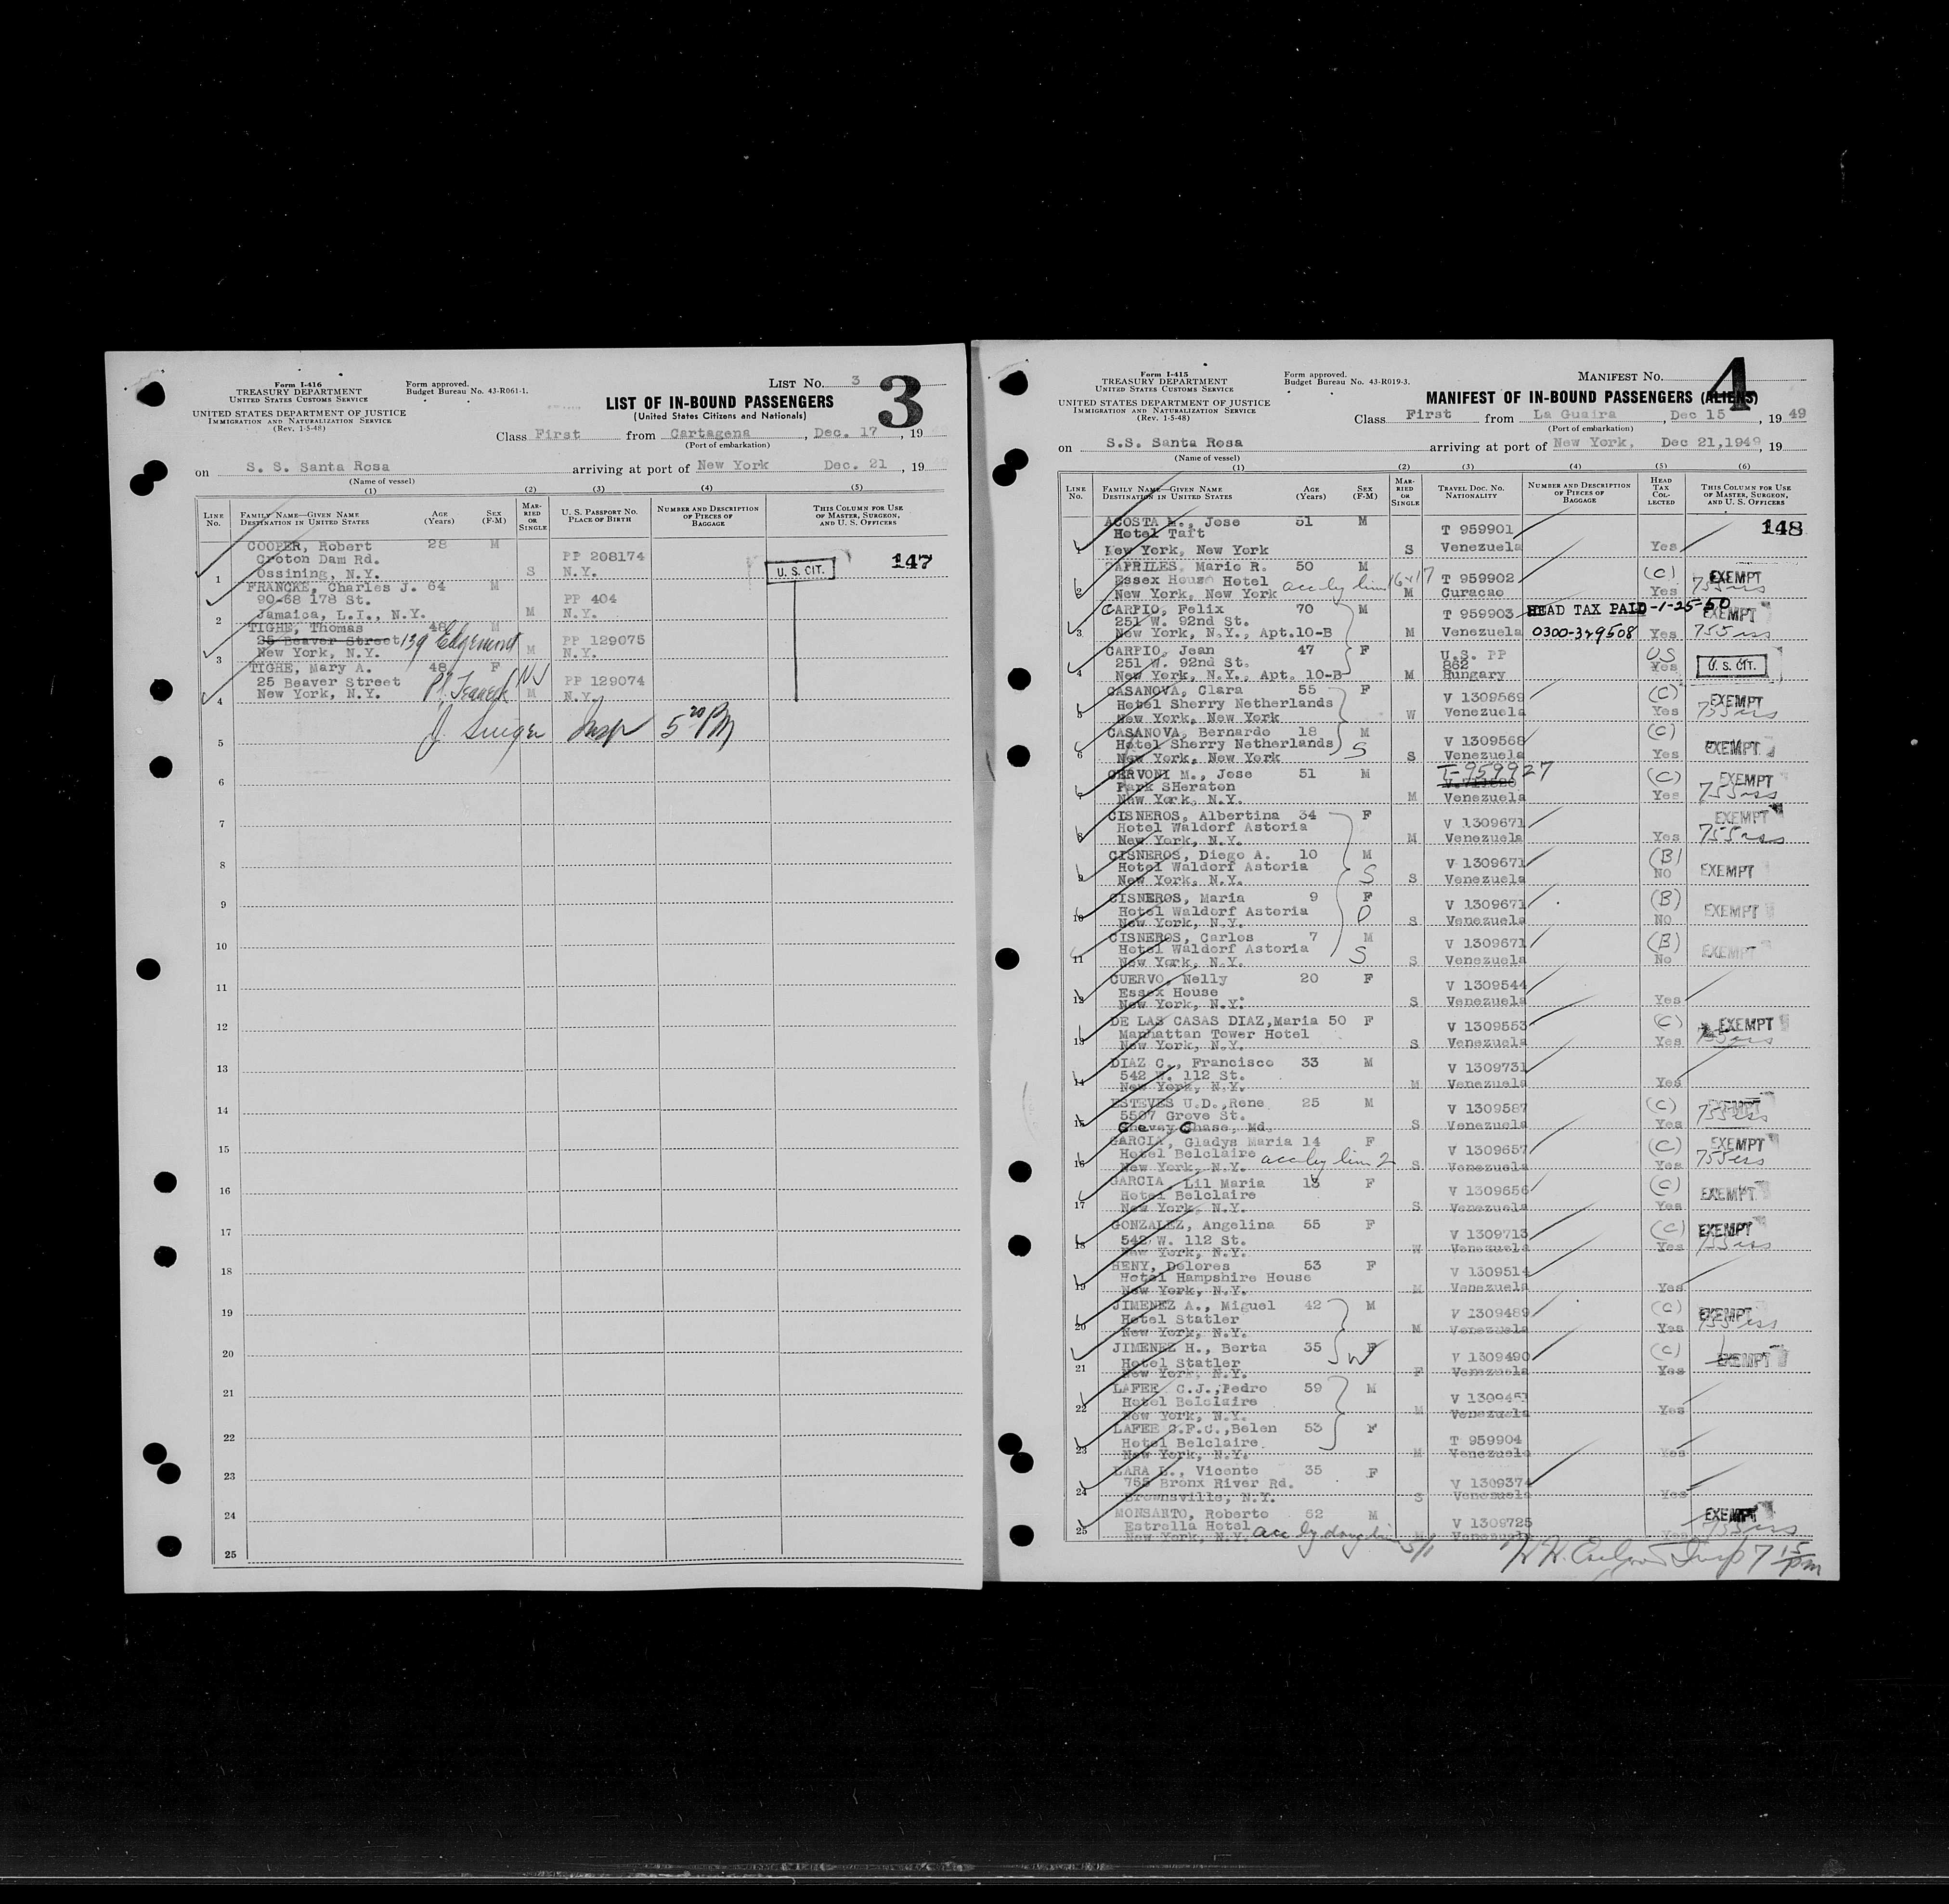 Form I-416
TREASURY DEPARTMENT
UNITED STATES CUSTOMS SERVICE
UNITED STATES DEPARTMENT OF JUSTICE
IMMIGRATION AND NATURALIZATION SERVICE
(Rev. 1-5-48)
Form approved.
Budget Bureau No. 43-R061-1.
LIST NO. 3
3
LIST OF IN-BOUND PASSENGERS
(United States Citizens and Nationals)
Class First from Cartagena, Dec. 17, 19
(Port of embarkation)
on S. S. Santa Rosa arriving at port of New York Dec. 21, 19
(Name of vessel)
(1) (2) (3) (4) (5)
LINE NO. FAMILY NAME—GIVEN NAME DESTINATION IN UNITED STATES AGE (YEARS) SEX (F-M) MARRIED OR SINGLE U. S. PASSPORT NO. PLACE OF BIRTH NUMBER AND DESCRIPTION OF PIECES OF BAGGAGE THIS COLUMN FOR USE OF MASTER, SURGEON, AND U. S. OFFICERS
147
COOPER, Robert 28 M
Croton Dam Rd. PP 208174 U. S. CIT.
1 Ossining, N.Y. S N.Y.
FRANCKE, Charles J. 64 M
90-68 178 St. PP 404
2 Jamaica, L.I., N.Y. M N.Y.
TIGHE, Thomas 48 M
25 Beaver Street 139 Edgemont PP 129075
3 New York, N.Y. M N.Y.
TIGHE, Mary A. 48 F
25 Beaver Street Pl. Teaneck NJ PP 129074
4 New York, N.Y. M N.Y.
J. Singer Insp 5 20 PM
5
6
7
8
9
10
11
12
13
14
15
16
17
18
19
20
21
22
23
24
25
Form I-415
TREASURY DEPARTMENT
UNITED STATES CUSTOMS SERVICE
UNITED STATES DEPARTMENT OF JUSTICE
IMMIGRATION AND NATURALIZATION SERVICE
(Rev. 1-5-48)
Form approved.
Budget Bureau No. 43-R019-3.
MANIFEST NO.
4
MANIFEST OF IN-BOUND PASSENGERS (ALIENS)
Class First from La Guaira, Dec 15, 19 49
(Port of embarkation)
on S.S. Santa Rosa arriving at port of New York, Dec 21,1949, 19
(Name of vessel)
(1) (2) (3) (4) (5) (6)
LINE NO. FAMILY NAME—GIVEN NAME DESTINATION IN UNITED STATES AGE (YEARS) SEX (F-M) MARRIED OR SINGLE TRAVEL DOC. NO. NATIONALITY NUMBER AND DESCRIPTION OF PIECES OF BAGGAGE HEAD TAX COLLECTED THIS COLUMN FOR USE OF MASTER, SURGEON, AND U. S. OFFICERS
148
ACOSTA M., Jose 51 M
Hotel Taft T 959901
1 New York, New York S Venezuela Yes
CAPRILES, Mario R. 50 M
Essex House Hotel acc by line 16 & 17 T 959902 (C) EXEMPT
2 New York, New York M Curacao Yes 755
CARPIO, Felix 70 M HEAD TAX PAID-1-25-50
251 W. 92nd St. T 959903 EXEMPT
3 New York, N.Y., Apt.10-B M Venezuela 0300-329508 Yes 755
CARPIO, Jean 47 F U.S. PP US
251 W. 92nd St. 862 U. S. CIT.
4 New York, N.Y., Apt. 10-B M Hungary Yes
CASANOVA, Clara 55 F (C)
Hotel Sherry Netherlands V 1309569 EXEMPT
5 New York, New York W Venezuela Yes 755
CASANOVA, Bernardo 18 M (C)
Hotel Sherry Netherlands S V 1309568 EXEMPT
6 New York, New York S Venezuela Yes
CERVONI M., Jose 51 M T-959927 (C) EXEMPT
Park SHeraton
7 New York, N.Y. M Venezuela Yes 755
CISNEROS, Albertina 34 F EXEMPT
Hotel Waldorf Astoria V 1309671
8 New York, N.Y. M Venezuela Yes 755
CISNEROS, Diego A. 10 M (B)
Hotel Waldorf Astoria S V 1309671 EXEMPT
9 New York, N.Y. S Venezuela NO
CISNEROS, Maria 9 F (B)
Hotel Waldorf Astoria D V 1309671 EXEMPT
10 New York, N.Y. S Venezuela NO
CISNEROS, Carlos 7 M (B)
Hotel Waldorf Astoria S V 1309671 EXEMPT
11 New York, N.Y. S Venezuela No
CUERVO, Nelly 20 F
Essex House V 1309544
12 New York, N.Y. S Venezuela Yes
DE LAS CASAS DIAZ,Maria 50 F (C) EXEMPT
Manhattan Tower Hotel V 1309553
13 New York, N.Y. S Venezuela Yes 755
DIAZ C., Francisco 33 M
542 W. 112 St. V 1309731
14 New York, N.Y. M Venezuela Yes
ESTEVES U.D.,Rene 25 M (C) EXEMPT
5507 Grove St. V 1309587
15 Chevay Chase, Md. S Venezuela Yes 755
GARCIA, Gladys Maria 14 F (C) EXEMPT
Hotel Belclaire acc by line 2 V 1309657
16 New York, N.Y. S Venezuela Yes 755
GARCIA, Lil Maria 13 F (C)
Hotel Belclaire V 1309656 EXEMPT
17 New York, N.Y. S Venezuela Yes
GONZALEZ, Angelina 55 F (C) EXEMPT
542 W. 112 St. V 1309713
18 New York, N.Y. W Venezuela Yes 755
HENY, Dolores 53 F
Hotel Hampshire House V 1309514
19 New York, N.Y. M Venezuela Yes
JIMENEZ A., Miguel 42 M (C)
Hotel Statler V 1309489 EXEMPT
20 New York, N.Y. M Venezuela Yes 755
JIMENEZ H., Berta 35 W F (C)
Hotel Statler V 1309490 EXEMPT
21 New York, N.Y. F Venezuela Yes
LAFEE C.J.,Pedro 59 M
Hotel Belclaire V 1309451
22 New York, N.Y. M Venezuela Yes
LAFEE C.F.C.,Belen 53 F
Hotel Belclaire T 959904
23 New York, N.Y. M Venezuela Yes
LARA L., Vicente 35 F
755 Bronx River Rd. V 1309374
24 Brownsville, N.Y. S Venezuela Yes
MONSANTO, Roberto 52 M EXEMPT
Estrella Hotel V 1309725
25 New York, N.Y. acc by Venezuela Yes 755
Insp 7 15 pm